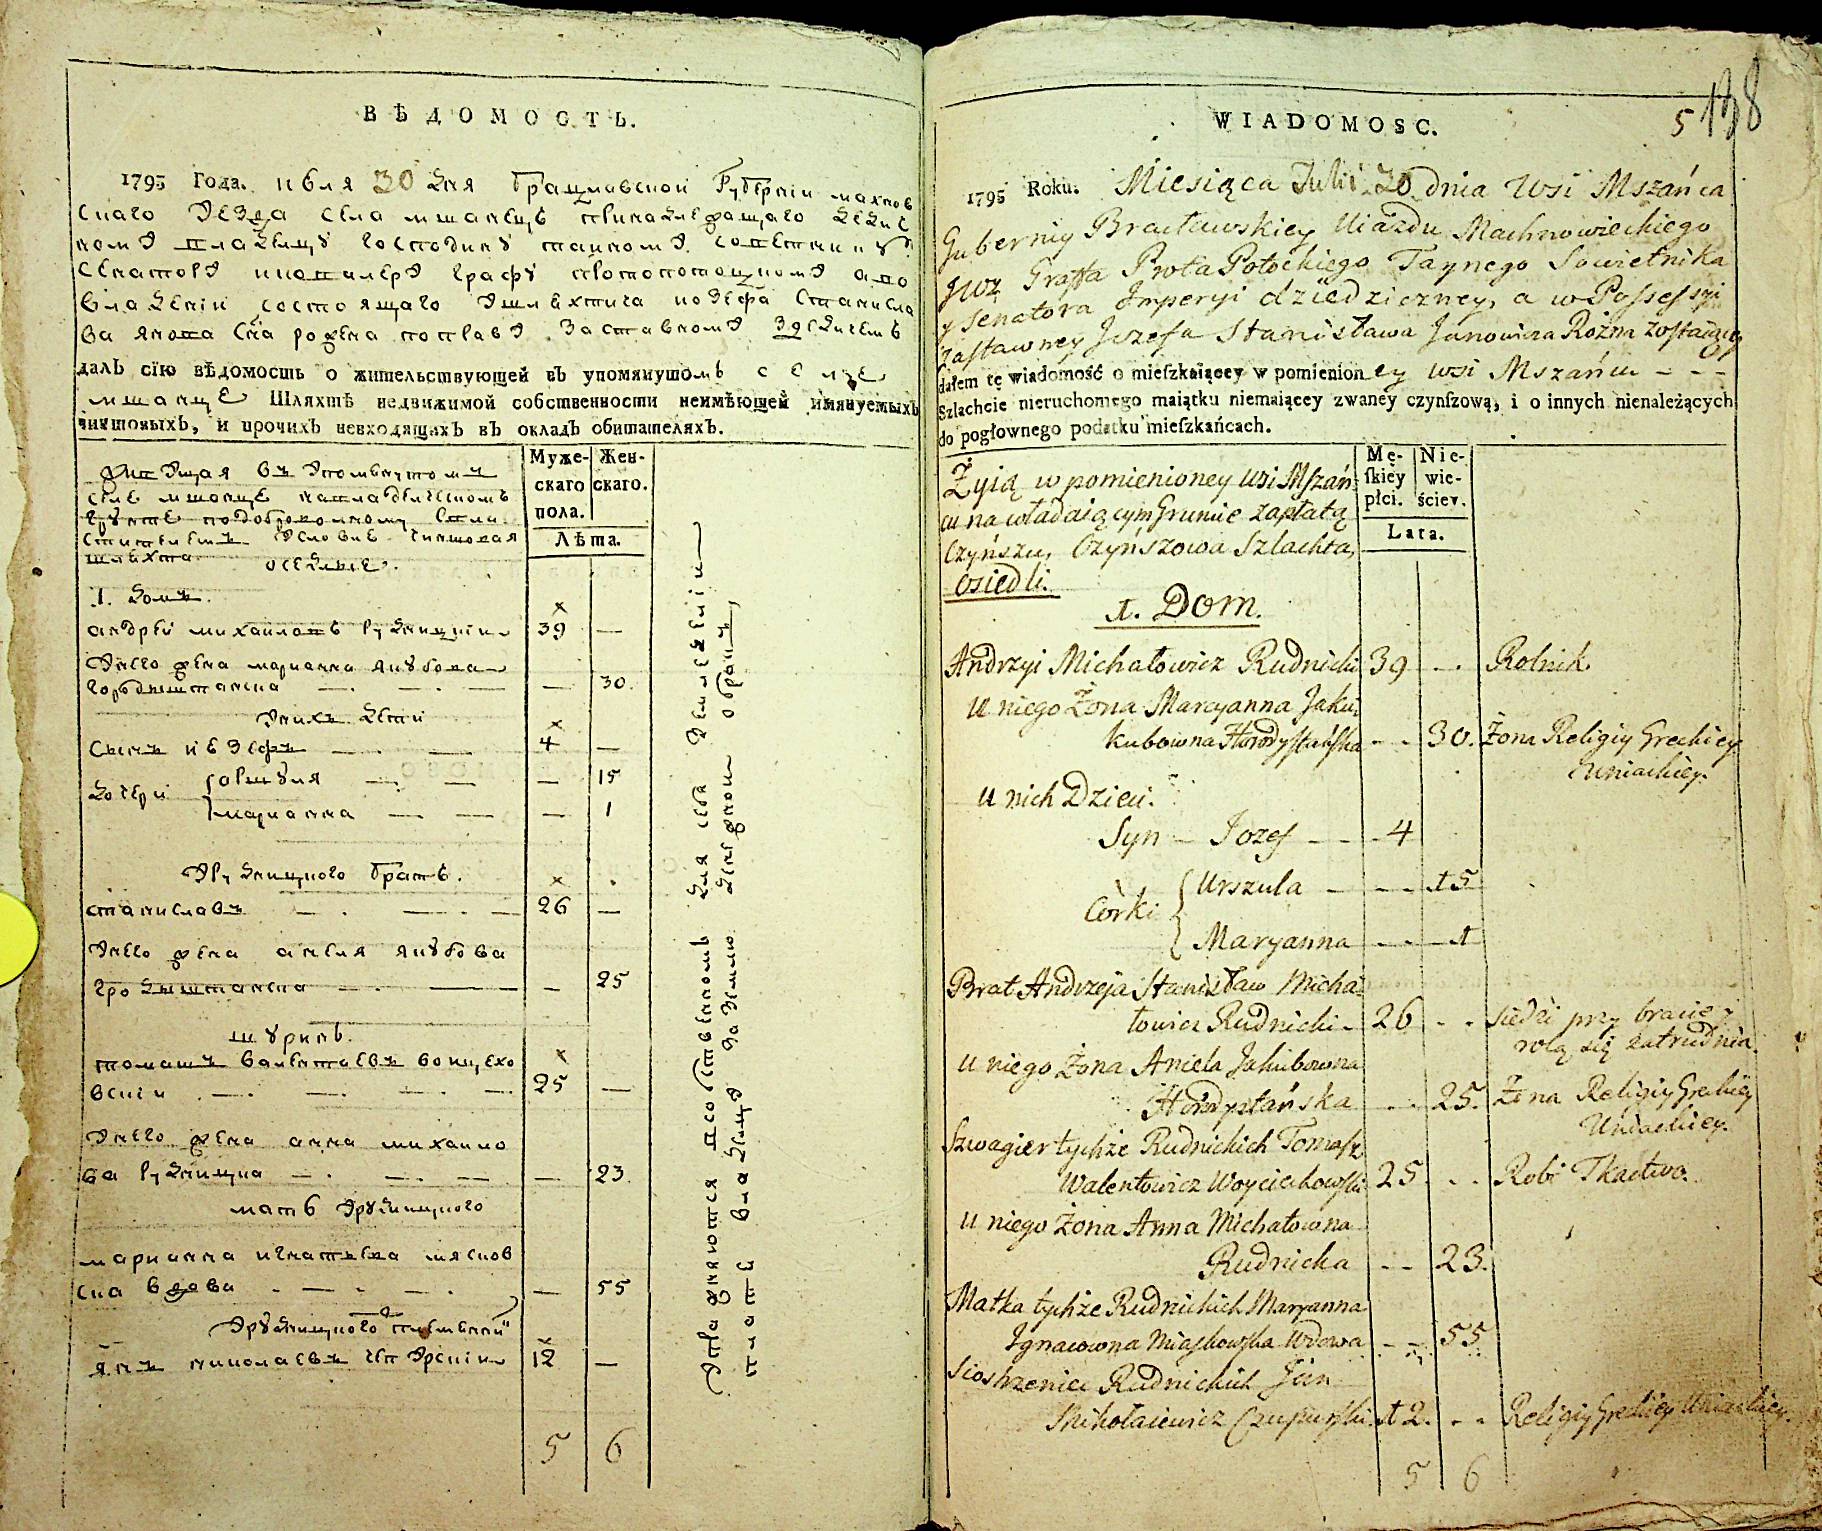 ВѢДОМОСТЬ.
1795 Года. июля 30 дня Брацлавской Губерніи махнов
скаго уезда села мшанецъ принадлежащаго действ
владению господину тайному советнику
сенатору и кавалеру графу протопотоцкому а во
владеніи состоящаго у шляхтича иозефа станисла
ва янова сна рожна по праву заставному
далъ сїю вѣдомость о жительствующей въ упомянутомъ селе
мшанце Шляхтѣ недвижимой собственности неимѣющей имянуемыхъ
чиншовыхъ, и прочихъ невходящихъ въ окладъ обитателяхъ.
Муже-
скаго
пола.
Жен-
скаго.
Лѣта.
живущая въ упомянутомъ
селе мшанце на владелческомъ
грунте по добровольному
условие чиншовая
шляхта оседлые.
1. домъ.
андрей михайловъ рудницкіи 39 —
унего жена марианна якубова
городыштанска — — — — 30.
унихъ дети
сынъ иозефъ — — 4 —
дочери { оршуля — — — 15
марианна — — — 1
у рудницкого братъ.
станиславъ — — — 26 —
унего жена анеля якубова
гродыштанска — — — — 25
шуринъ.
томашъ валентиевъ войцехо
вскіи — — — 25 —
унего жена анна михайло
ва рудницка — — — — 23.
мать у рудницкого
марианна игнатьева мясков
ска вдова — — — — 55
у рудницкого племенник
янъ николаевъ чепурскіи 12 —
5 6
упражняются в собственномъ для себя земледеліи
платя владелцу за землю денежной оброкъ,
WIADOMOSC.
5 138
1795 Roku. Miesiąca Julii 30 dnia Wsi Mszańca
Gubernij Bracławskiey Uiazdu Machnowieckiego
JWZ Graffa Prota Potockiego Taynego Sowietnika
y Senatora Imperyi dziedziczney, a w Possessyi
Zastawney Jozefa Stanisława Janowicza Rożna zostaiącey
dałem tę wiadomość o mieſzkaiącey w pomienioney wsi Mszańcu - - -
Szlachcie nieruchomego maiątku niemaiącey zwaney czynſzową, i o innych nienależących
do pogłownego podatku mieſzkańcach.
Mę-
ſkiey
płci.
Nie-
wie-
ściey.
Lata.
Żyią w pomienioney wsi Mszań:
cu na władaiącym Gruncie zapłatą
Czynszu, Czynszowa Szlachta,
osiedli.
1. Dom.
Andrzyi Michałowicz Rudnicki 39 - . Rolnik
u niego Żona Maryanna Jaku:
kubowna Horodyſtańſka - - 30. Żona Religiy Greckiey
Uniackiey.
u nich Dzieci.
Syn — Jozef — - - 4
Córki { Urszula — - - 15
Maryanna — - - 1
Brat Andrzeja Stanisław Micha:
łowicz Rudnicki - 26 - - siedzi przy bracie y
rolą się zatrudnia.
u niego Żona Aniela Jakubowna
Horodystańska - - 25. Żona Religiy Greckiey
Uniackiey.
Szwagier tychże Rudnickich Tomaſz
Walentowicz Woyciechowſki 25 - - Robi Tkactwo.
u niego Żona Anna Michałowna
Rudnicka - - 23.
Matka tychże Rudnickich Maryanna
Ignacowna Miaſkowſka Wdowa - - 55
Siostrzeniec Rudnickich Jan
Mikołaiewicz Czupurſki 12. - - Religiy Greckiey Uniackiey.
5 6